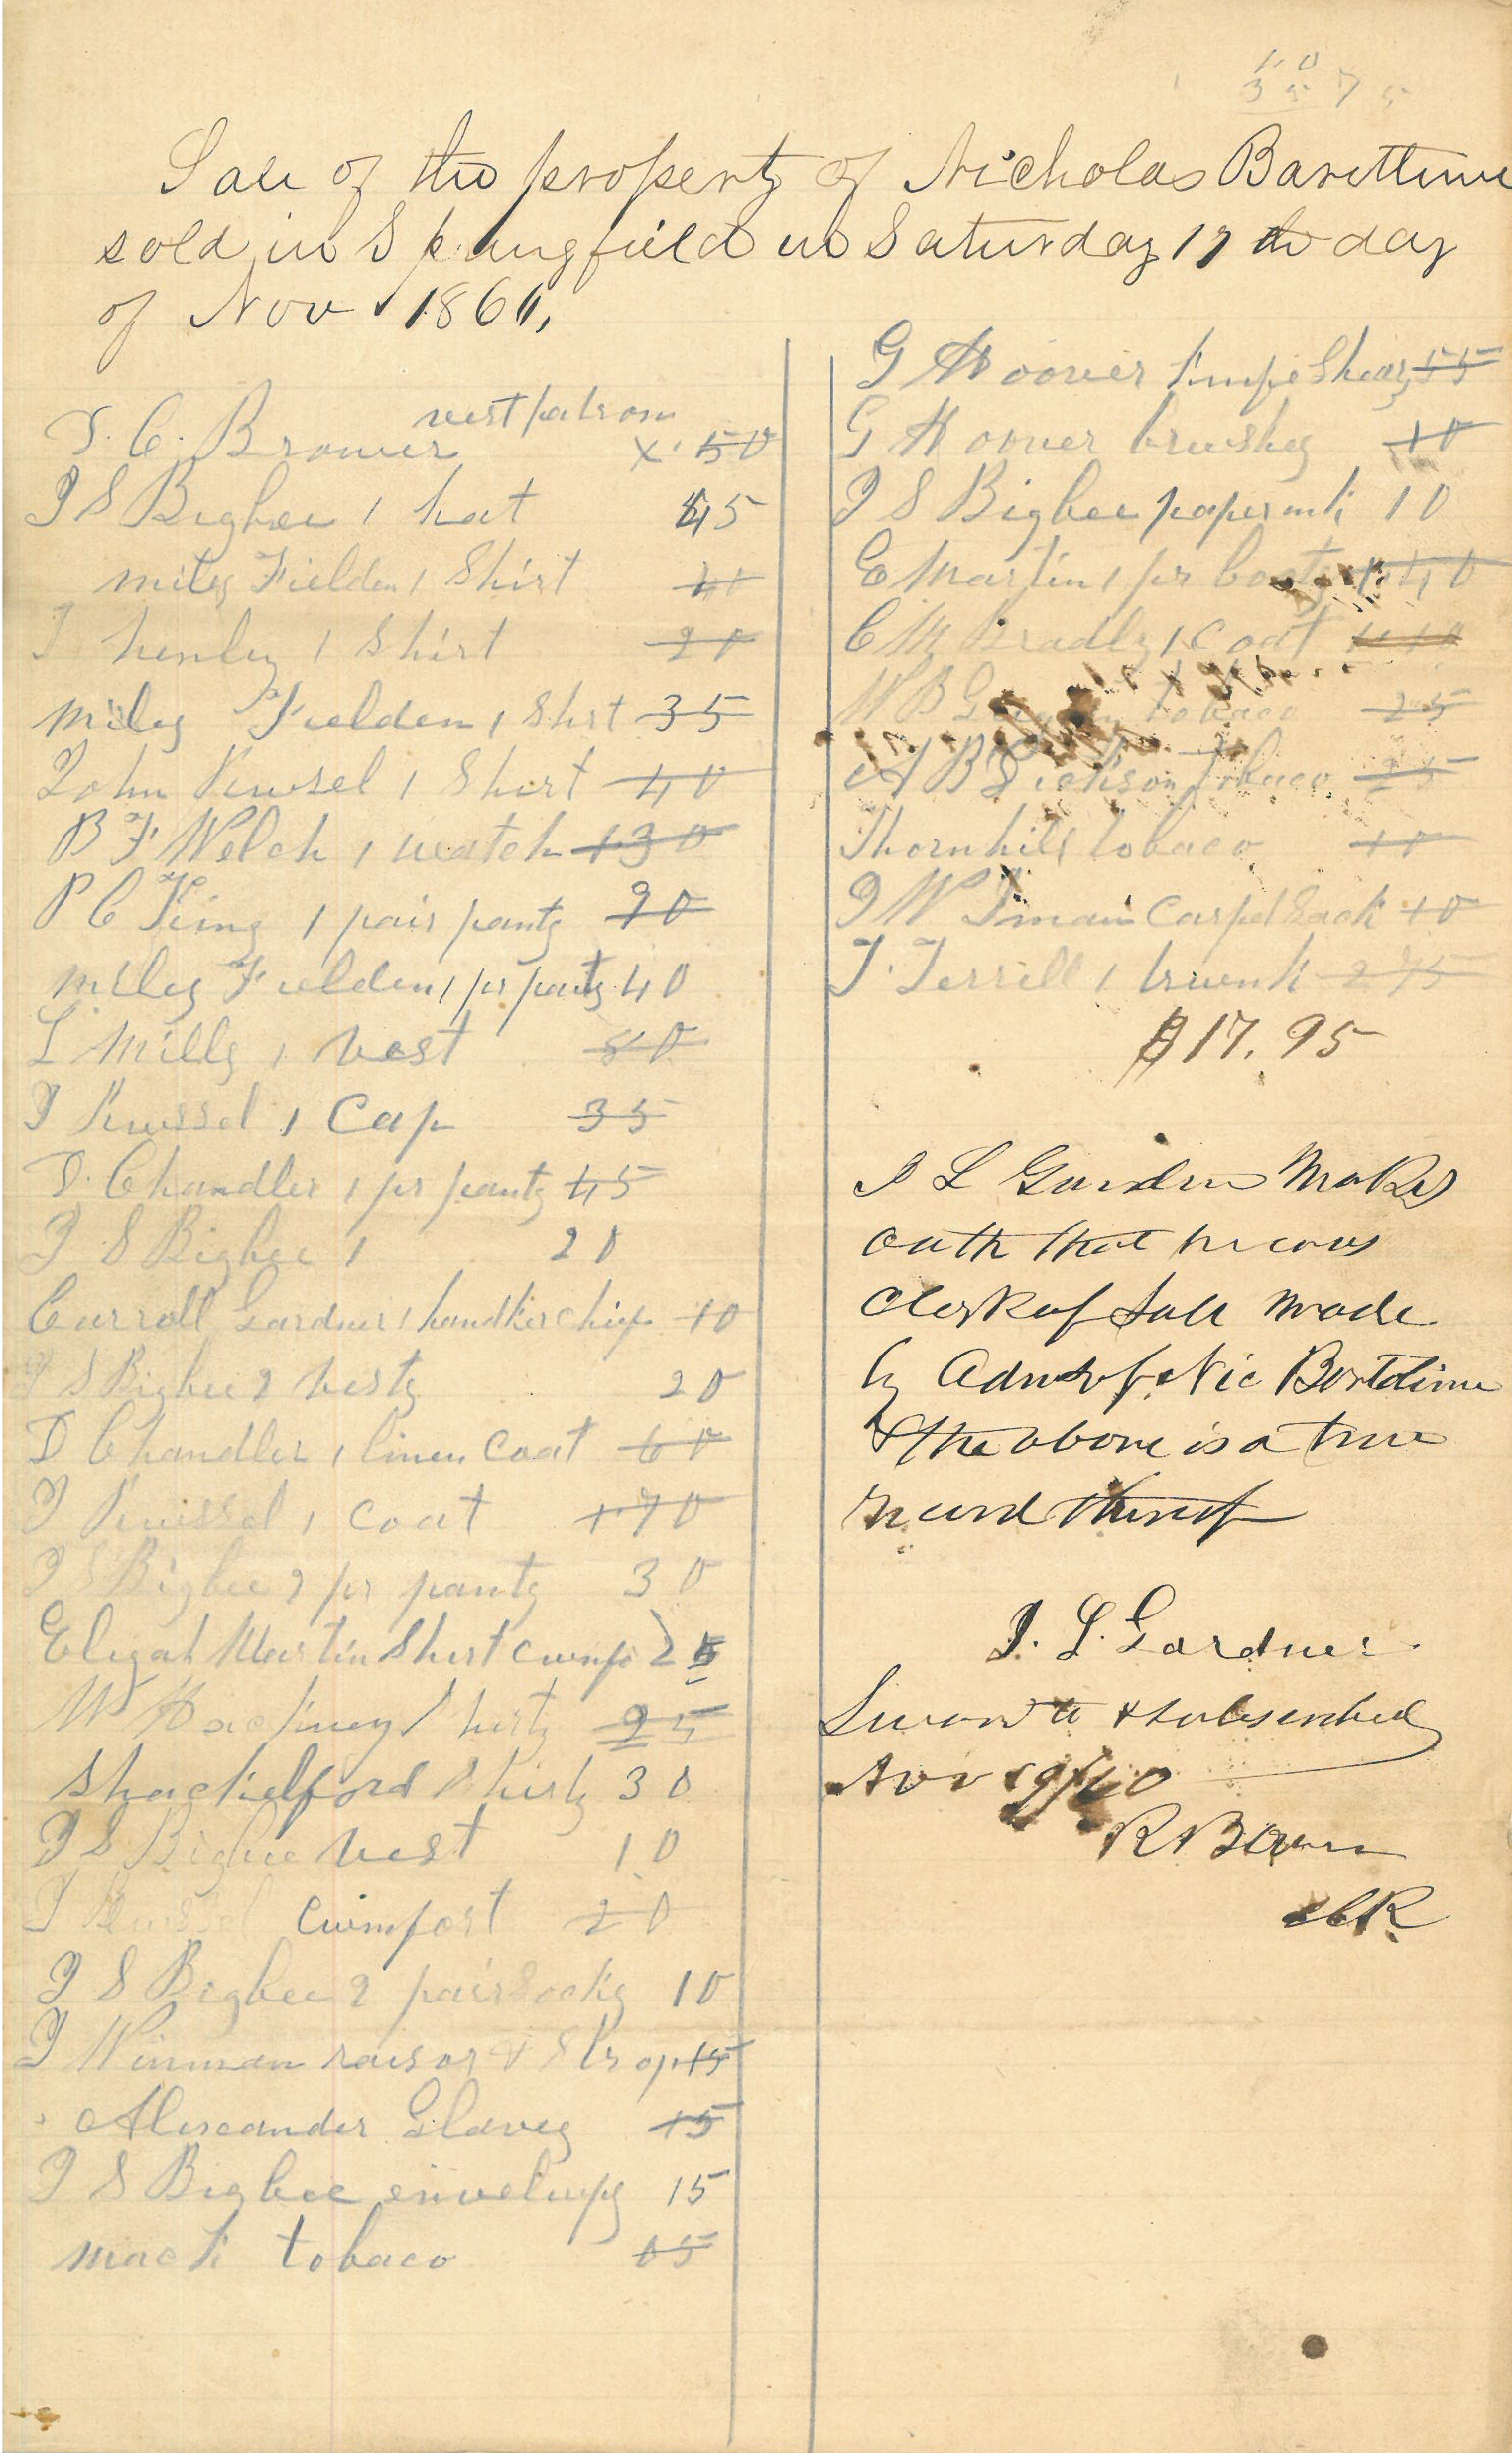 3575
Sale of the property of Nicholas Barettime
sold in Springfield on Saturday 17 th day
of Nov 1860,
vest patrom
T. C. Brower x. 50
J S Bigbee 1 hat 45
miles Fielden 1 Shirt
J henley 1 Shirt 20
miles Fielden 1 Shirt 35
John Kinsel 1 Shirt 40
B F Welch 1 watch 130
P C King 1 pair pants 90
miles Fielden 1 pr pants 40
L Mills 1 vest 80
J Kinssel 1 Cap 35
T. Chandler 1 pr pants 45
J S Bigbee 1 20
Carroll Gardner 1 handkerchief 10
J S Bigbee 2 vests 20
T Chandler 1 linen Coat 60
J Kinssel 1 Coat 170
J S Bigbee 2 pr pants 30
Elijah Martin Shirt 25
W Hackney Shirts 25
Shackelford Shirts 30
J S Bigbee vest 10
J cumfort 20
J S Bigbee 2 pair Socks 10
J Winman rausor & Strop 15
Alexcander Glaves 15
J S Bigbee envelups 15
mack tobaco 05
G Hoover Shears 55
G Hoover brushes 10
J S Bigbee paper ink 10
E Martin 1 pr boots 1.40
C M Bradly 1 Coat
W B tobaco 25
A B Tobaco 25
Thornhill tobaco 10
J W Inman Carpet Sack 10
T. Terrell 1 trunk 275
$17.95
J L Garden Makes
Oath that he was
Clerk of Sale Made
by Admr of Nic Bartolime
& the above is a true
record thereof
J. L. Gardner
Sworn to & subscribed
Nov 19/60
R Brown